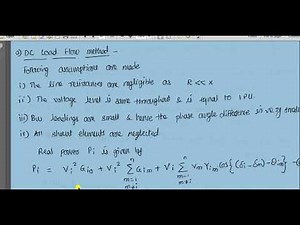 2) DC Load Flow method -
Following assumptions are made
i) The line resistances are negligible as R << x
ii) The voltage level is same throughout & is equal to 1 PU.
iii) Bus loadings are small & hence the phase angle difference is very small
iv) All shunt elements are neglected
Real power Pi is given by
Pi = Vi² Gio + Vi² Σ Gim + Vi Σ Vm Yim cos{(δi - δm) - θim}